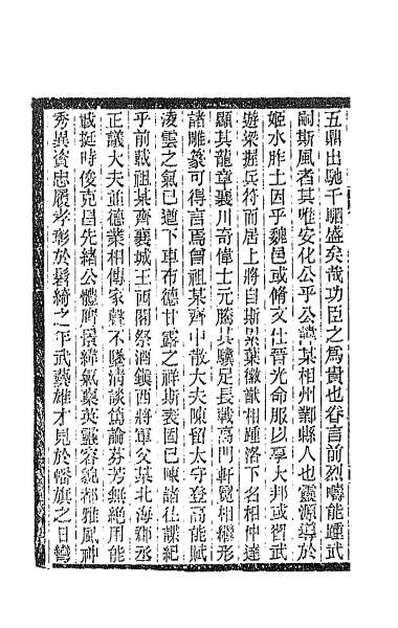 五鼎出馳千駟盛矣哉功臣之爲貴也眷言前烈疇能踵武
嗣斯風者其唯安化公乎公諱某相州鄴縣人也靈源導於
姬水胙土因乎魏邑或脩文仕晉光命服以享大邦或習武
遊梁握兵符而居上將自斯累葉徽猷相踵洛下名相仲達
顯其龍章襄川奇偉士元騰其驥足長戟高門軒冕相繼形
諸雕篆可得言焉曾祖某齊中散大夫陳留太守登高能賦
淩雲之氣已遒下車布德甘露之祥斯表固已陳諸往諜紀
乎前載祖某齊襄城王西閤祭酒鎭西將軍父某北海郡丞
正議大夫並德業相傳家聲不墜清談篤論芬芳無絶用能
誕挺時俊克昌先緒公體膺景緯氣稟英靈容貌都雅風神
秀異資忠履孝彰於髫綺之年武藝雄才見於幡旗之日彎